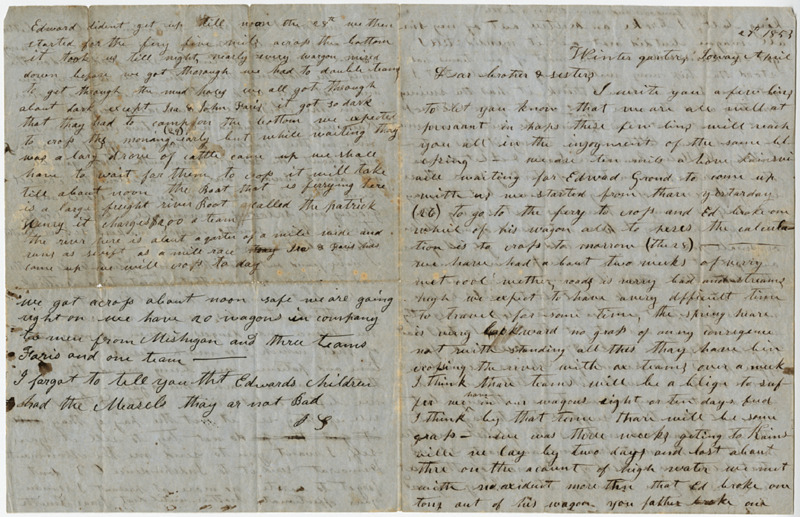 27th 1853
Winter quarters Ioway April
Dear brother & sisters
I write you a few lins
to let you know that we are all well at
presant in haps these few lins will reach
you all in the injoyment of the same bl
esing — we are ten mile a bove
ville waiting for Edward Ground to come up
with us we started from thare yesterday
(26) to go to the ferry to crops and Ed broke one
wheel of his wagon all to peses the calcula
tion is to crops to morrow (the 28) —
we have had a bout two weeks of very
wet cool wether roads is verry bad and streams
high we expect to have a very difficult time
to travel for some time, the spring heare
is very backward no grass of any consequence
not with standing all this thay have bin
crossing the river with ox teams over a week
I think thare teams will be a blige to suf
fer we have in our wagons eight or ten days feed
I think by that time thare will be some
grass — we was three weeks geting to Kains
ville we lay by two days and lost about
thre on the acount of high water we met
with no axident more than that Ed broke one
tong out of his wagon you father broke one
Edward dident get up till noon the 28th we then
started for the ferry four mile acrops the bottom
it took us till night nearly every wagon mired
down before we got thorough we had to double teams
to get through the mud holes we all got through
about dark except Ira & John Faris it got so dark
that thay had to camp on the bottom we expected
to crops the morning (29) early but while waiting thay
was a larg drove of cattle came up we shall
have to wait for them to crops it will take
till about noon the Boat that is ferrying here
is a large freight river Boat called the patrick
Henry it charges $2,00 a team
the river here is about a quarter of a mile wide and
runs as swift as a mile race Ira & Faris has
come up we will crops to day
we got acrops about noon safe we are going
right on we have 20 wagons in company
ten were from Mishigan and three teams
Faris and one team —
I fargot to tell you tht Edwards children
had the Measels thay ar not Bad
I G